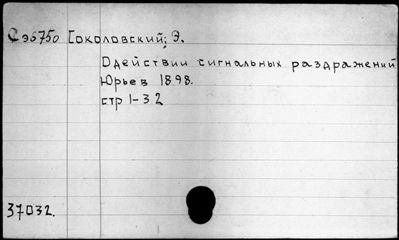 Сэ6750 Соколовский, Э.
О действии сигнальных раздражений
Юрьев 1898.
стр 1-32
37032.